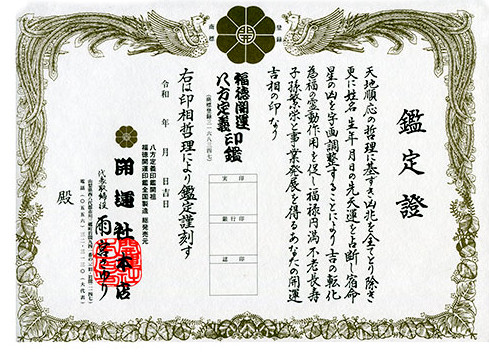 登録
商標
鑑定證
天地順応の哲理に基すき凶兆を全てとり除き
更に姓名生年月日の先天運を占断し宿命
星の凶を字画調整することにより吉の転化
為福の霊動作用を促し福禄円満不老長寿
子孫繁栄と事業発展を得るあなたの開運
吉相の印なり
福徳開運印鑑
八方定義
実印
銀行印
認印
右は印相哲理により鑑定謹刻す
令和 年 月 日吉日
八方定義印鑑開祖
福徳開運印鑑全国製造 総発売元
開運社本店
代表取締役 雨宮さゆり
殿